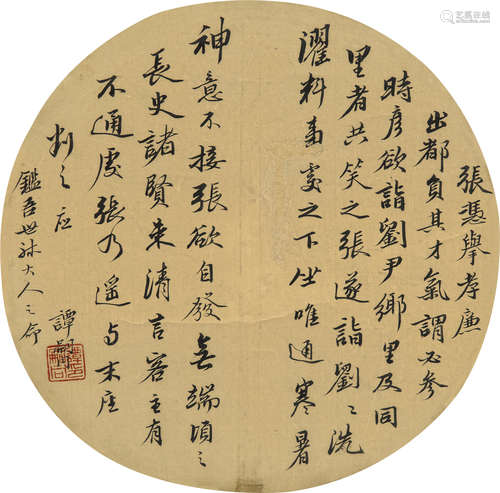 張憑舉孝廉
出都負其才氣謂必參
時彦欲詣劉尹鄉里及同
里者共笑之張遂詣劉〻洗
濯料事處之下坐唯通寒暑
神意不接張欲自發無端頃之
長史諸賢來清言客主有
不通處張乃遥於末座
判之 应
鑑吾世叔大人之命
譚